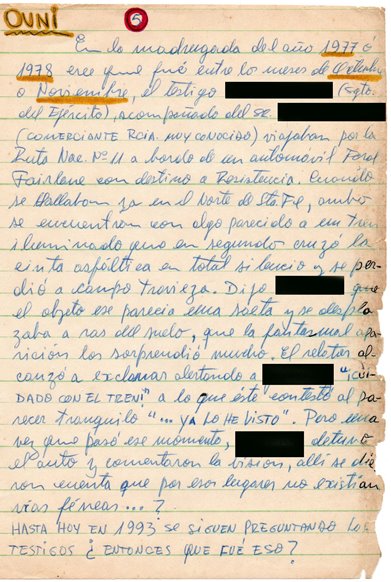 OVNI
5
En la madrugada del año 1977 ó
1978 cree que fué entre los meses de Octubre
o Noviembre, el testigo (Sgto.
del Ejército), acompañado del Sr.
(COMERCIANTE RCIA. MUY CONOCIDO) viajaban por la
Ruta Nac. Nº 11 a bordo de un automóvil Ford
Fairlane con destino a Resistencia. Cuando
se hallaban ya en el Norte de Sta Fé, ambos
se encuentran con algo parecido a un tren
iluminado que en segundo cruzó la
cinta asfáltica en total silencio y se per-
dió a campo travieza. Dijo que
el objeto se parecía una saeta y se despla
zaba a ras del suelo, que la fantasmal apa-
rición los sorprendió mucho. El relator al-
canzó a exclamar alertando a "¡CUI-
DADO CON EL TREN!" a lo que éste contestó al pa-
recer tranquilo "... YA LO HE VISTO". Pero una
vez que pasó ese momento, detuvo
el auto y comentaron la visión, allí se die-
ron cuenta que por esos lugares no existían
vías férreas...?
HASTA HOY EN 1993 SE SIGUEN PREGUNTANDO LOS
TESTIGOS ¿ENTONCES QUE FUÉ ESO?